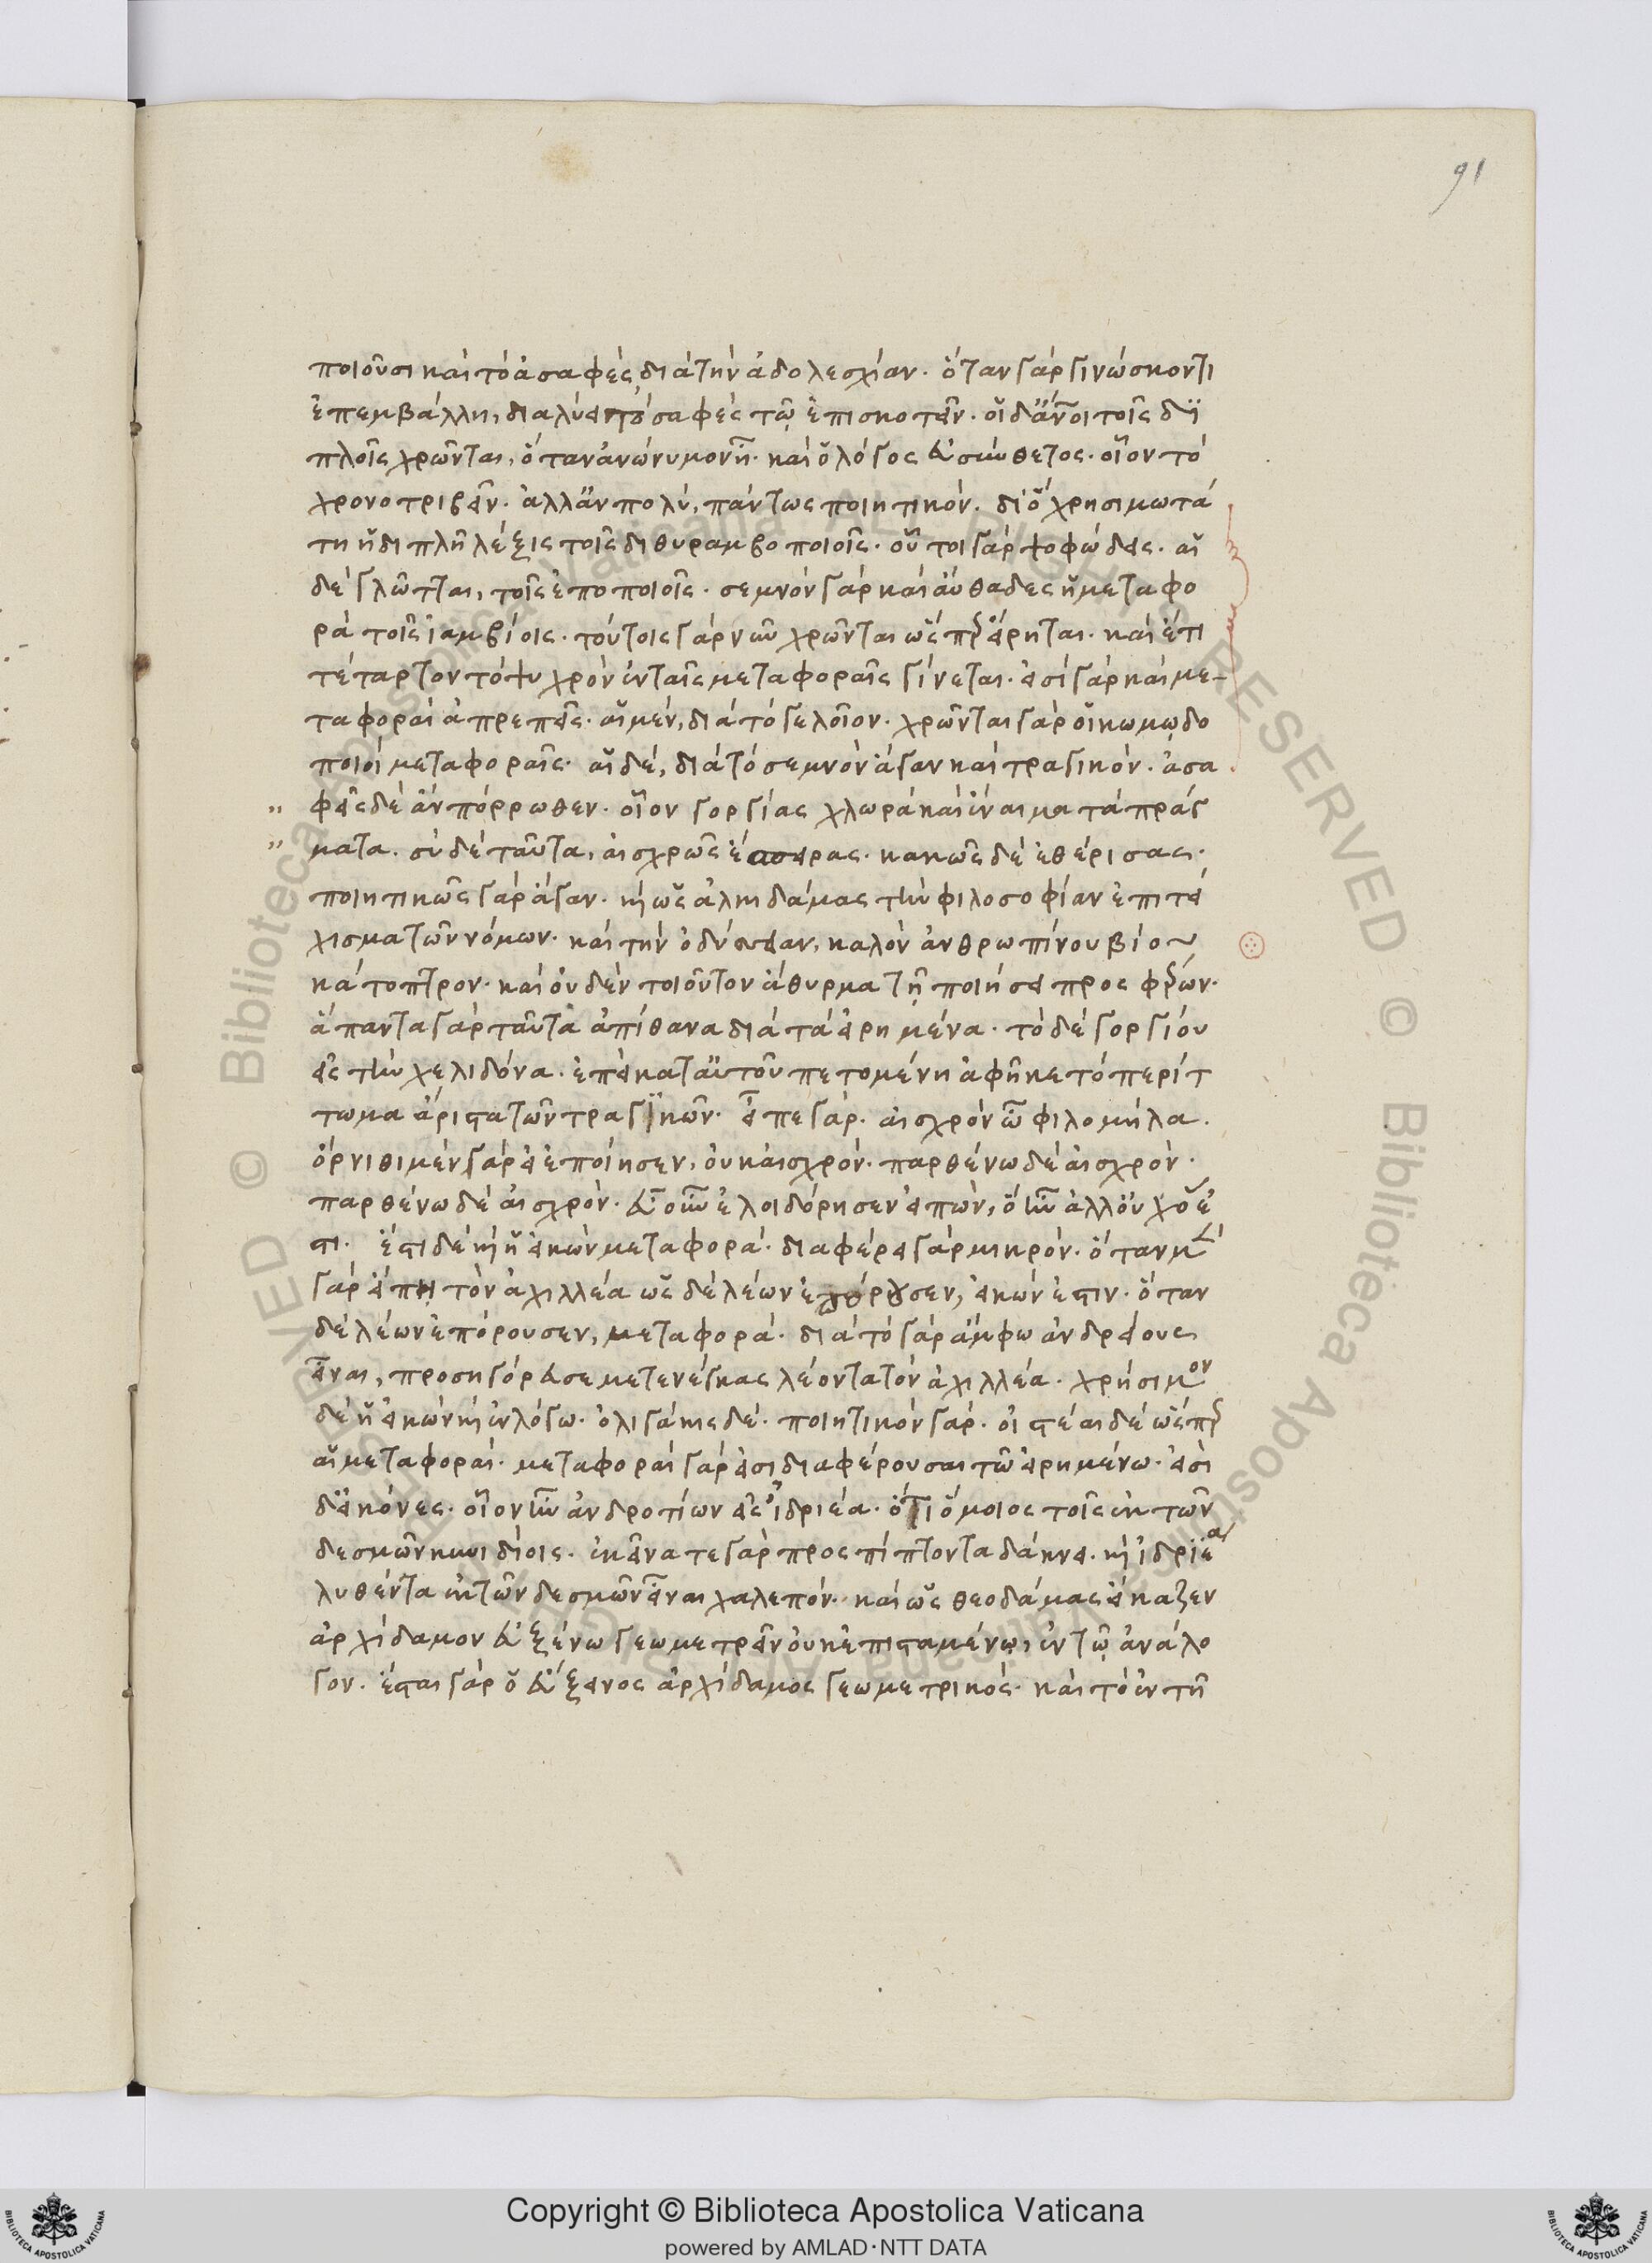 91
ποιοῦσι καὶ τὸ ἀσαφὲς διὰ τὴν ἀδολεσχίαν. ὅταν γὰρ γινώσκοντι
ἐπεμβάλλη, διαλύει τὸ σαφὲς τῶ ἐπισκοτεῖν. οἱ δ' ἄνοι τοῖς δι
πλοῖς χρῶνται, ὅταν ἀνώνυμον ἦ. καὶ ὁ λόγος εὐσύνθετος. οἷον τὸ
χρονοτριβεῖν. ἀλλ' ἂν πολύ, πάντως ποιητικόν. διὸ χρησιμωτά
τη ἡ διπλῆ λέξις τοῖς διθυραμβοποιοῖς. οὗτοι γὰρ ψοφώδεις. αἱ
δὲ γλῶτται, τοῖς ἐποποιοῖς. σεμνὸν γὰρ καὶ αὔθαδες ἡ μεταφο
ρὰ τοῖς ἰαμβίοις. τούτοις γὰρ νῦν χρῶνται ὥσπερ εἴρηται. καὶ ἔτι
τέταρτον τὸ ψυχρὸν ἐν ταῖς μεταφοραῖς γίνεται. εἰσὶ γὰρ καὶ με-
ταφοραὶ ἀπρεπεῖς. αἱ μέν, διὰ τὸ γελοῖον. χρῶνται γὰρ οἱ κωμωδο
ποιοὶ μεταφοραῖς. αἱ δέ, διὰ τὸ σεμνὸν ἄγαν καὶ τραγικόν. ἀσα
" φεῖς δὲ ἂν πόρρωθεν. οἷον γοργίας χλωρὰ καὶ ἔναιμα τὰ πράγ
" ματα. σὺ δὲ ταῦτα, αἰσχρῶς ἔσπειρας. κακῶς δὲ ἐθέρισας.
ποιητικῶς γὰρ ἄγαν. καὶ ὡς ἀλκιδάμας τὴν φιλοσοφίαν ἐπιτεί
χισμα τῶν νόμων. καὶ τὴν ὀδύσσειαν, καλὸν ἀνθρωπίνου βίου
κάτοπτρον. καὶ οὐδὲν τοιοῦτον ἄθυρμα τῆ ποιήσει προσφέρων.
ἅπαντα γὰρ ταῦτα ἀπίθανα διὰ τὰ εἰρημένα. τὸ δὲ γοργίου
εἰς τὴν χελιδόνα. ἐπεὶ κατ' αὐτοῦ πετομένη ἀφῆκε τὸ περίτ
τωμα ἄριστα τῶν τραγικῶν. εἶπε γάρ. αἰσχρὸν ὦ φιλομήλα.
ὄρνιθι μὲν γὰρ εἰ ἐποίησεν, οὐκ αἰσχρόν. παρθένω δὲ αἰσχρόν.
παρθένω δὲ αἰσχρόν. εὖ οὖν ἐλοιδόρησεν εἰπών, ὃ ἦν ἀλλ' οὐχ ὅ ἐ
στι. ἔστι δὲ καὶ ἡ εἰκὼν μεταφορά. διαφέρει γὰρ μικρόν. ὅταν μὲν
γὰρ εἴπη τὸν ἀχιλλέα ὡς δὲ λέων ἐπόρουσεν, εἰκών ἐστιν. ὅταν
δὲ λέων ἐπόρουσεν, μεταφορά. διὰ τὸ γὰρ ἄμφω ἀνδρείους
εἶναι, προσηγόρευσε μετενέγκας λέοντα τὸν ἀχιλλέα. χρήσιμον
δὲ ἡ εἰκὼν καὶ ἐν λόγω. ὀλιγάκις δέ. ποιητικὸν γάρ. οἰστέαι δὲ ὥσπερ
αἱ μεταφοραί. μεταφοραὶ γὰρ εἰσι διαφέρουσαι τῶ εἰρημένω. εἰσὶ
δ' εἰκόνες. οἷον ἣν ἀνδροτίων εἰς ἰδριέα. ὅτι ὅμοιος τοῖς ἐκ τῶν
δεσμῶν κυνιδίοις. ἐκεῖνά τε γὰρ προσπίπτοντα δάκνει. καὶ ἰδριέα
λυθέντα ἐκ τῶν δεσμῶν εἶναι χαλεπόν. καὶ ὡς θεοδάμας εἴκαζεν
ἀρχίδαμον εὐξένω γεωμετρεῖν οὐκ ἐπισταμένω, ἐν τῶ ἀνάλο
γον. ἔσται γὰρ ὁ εὔξεινος ἀρχίδαμος γεωμετρικός. καὶ τὸ ἐν τῆ
© Biblioteca Apostolica Vaticana
Copyright © Biblioteca Apostolica Vaticana
powered by AMLAD·NTT DATA